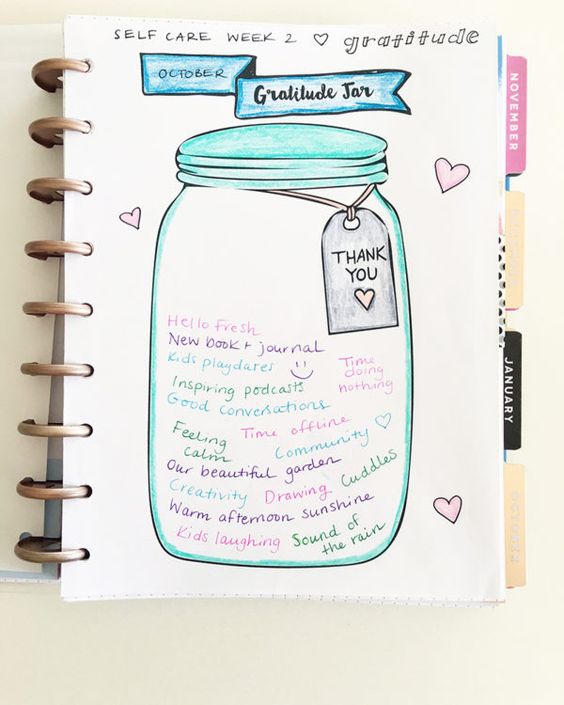 SELF CARE WEEK 2 ♡ gratitude
OCTOBER
Gratitude Jar
THANK
YOU
Hello Fresh
New book + journal
Kids playdates
Time
doing
nothing
Inspiring podcasts
Good conversations
Feeling
calm
Time offline
Community ♡
Our beautiful garden
Cuddles
Creativity
Drawing
Warm afternoon sunshine
Kids laughing
Sound of
the rain
NOVEMBER
JANUARY
OCTOBER